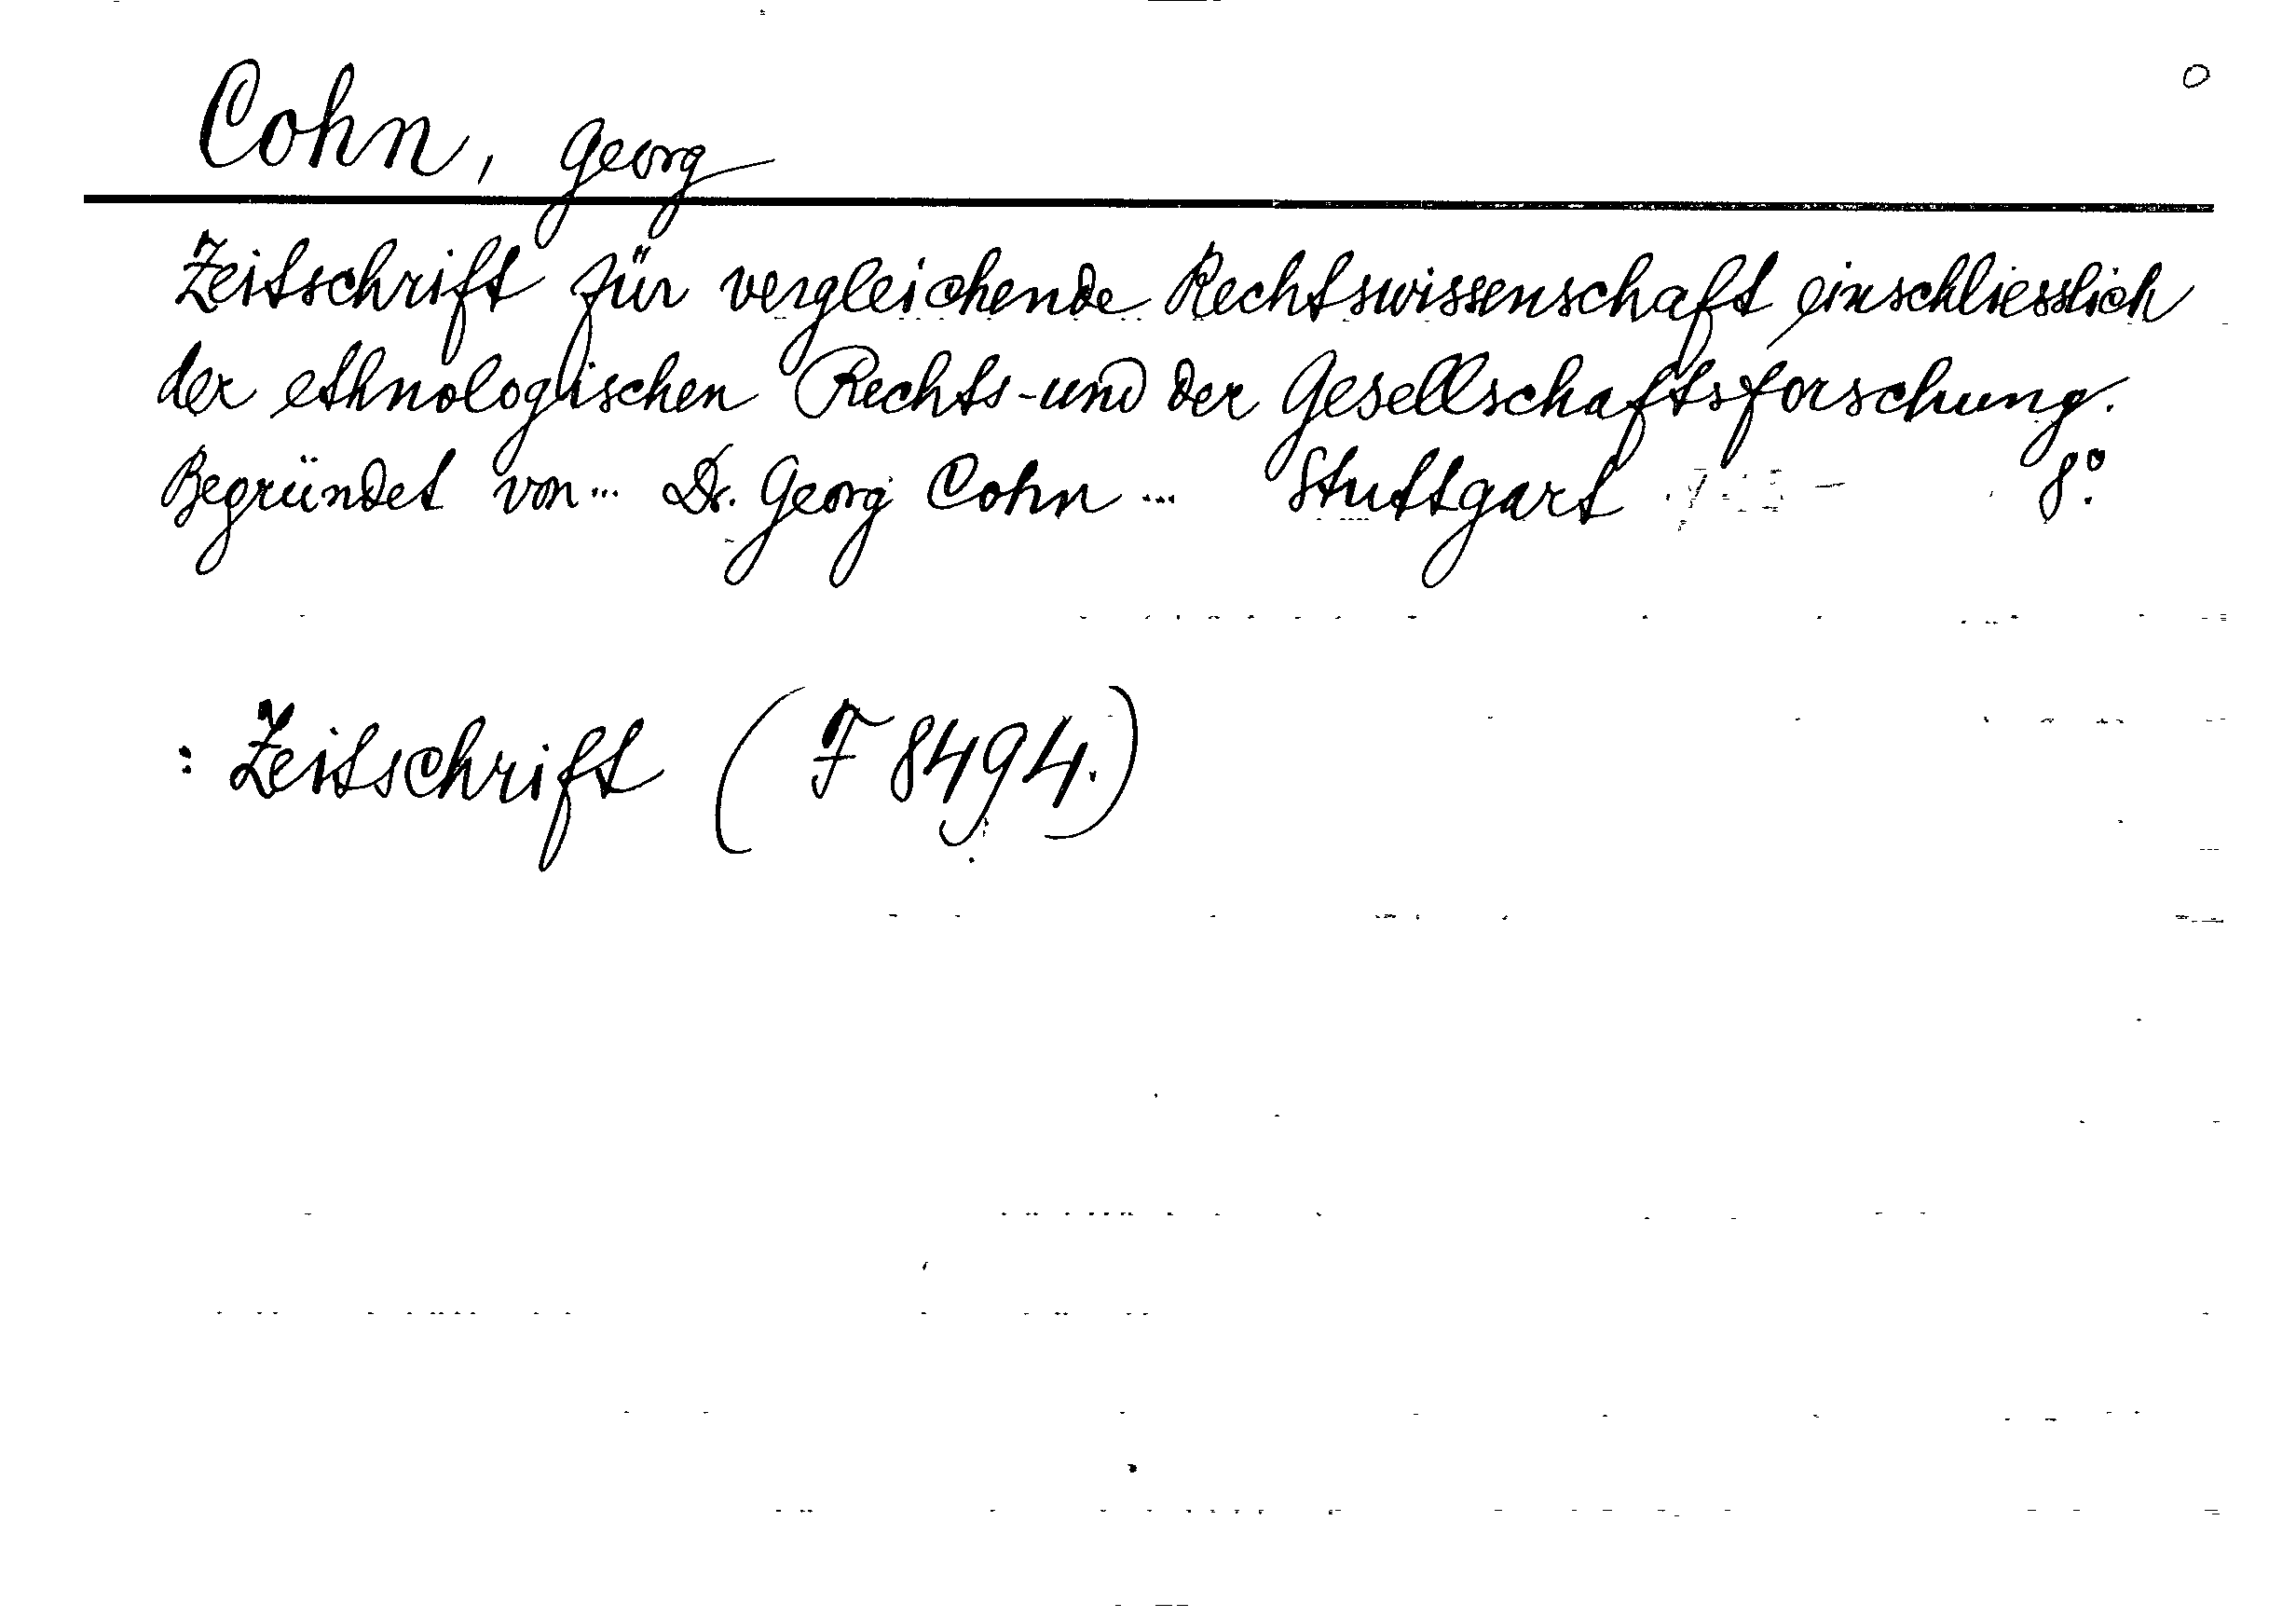 Cohn, Georg
Zeitschrift für vergleichende Rechtswissenschaft einschliesslich
der ethnologischen Rechts-und der Gesellschaftsforschung.
Begründet von... Dr. Georg Cohn ... Stuttgart 8°.
: Zeitschrift (F 8494.)